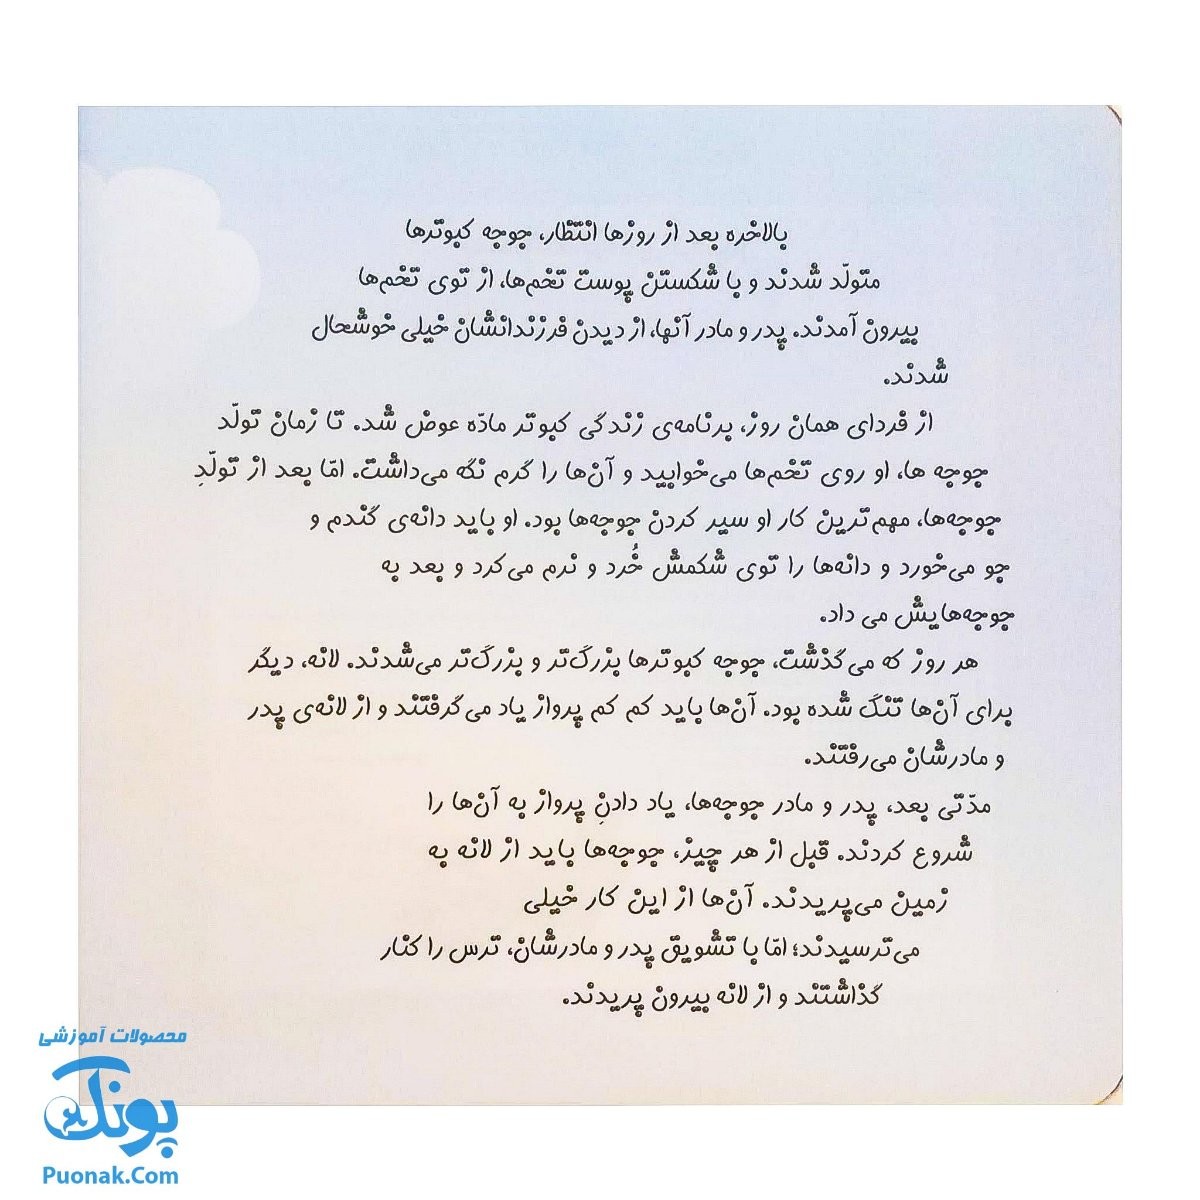 بالاخره بعد از روزها انتظار، جوجه کبوترها
متولّد شدند و با شکستن پوست تخم‌ها، از توی تخم‌ها
بیرون آمدند. پدر و مادر آنها، از دیدن فرزندانشان خیلی خوشحال
شدند.
از فردای همان روز، برنامه‌ی زندگی کبوتر مادّه عوض شد. تا زمان تولّد
جوجه ها، او روی تخم‌ها می‌خوابید و آن‌ها را گرم نگه می‌داشت. امّا بعد از تولّدِ
جوجه‌ها، مهم‌ترین کار او سیر کردن جوجه‌ها بود. او باید دانه‌ی گندم و
جو می‌خورد و دانه‌ها را توی شکمش خُرد و نرم می‌کرد و بعد به
جوجه‌هایش می داد.
هر روز که می‌گذشت، جوجه کبوترها بزرگ‌تر و بزرگ‌تر می‌شدند. لانه، دیگر
برای آن‌ها تنگ شده بود. آن‌ها باید کم کم پرواز یاد می‌گرفتند و از لانه‌ی پدر
و مادرشان می‌رفتند.
مدّتی بعد، پدر و مادر جوجه‌ها، یاد دادنِ پرواز به آن‌ها را
شروع کردند. قبل از هر چیز، جوجه‌ها باید از لانه به
زمین می‌پریدند. آن‌ها از این کار خیلی
می‌ترسیدند؛ امّا با تشویق پدر و مادرشان، ترس را کنار
گذاشتند و از لانه بیرون پریدند.
محصولات آموزشی
پونک
Puonak.Com